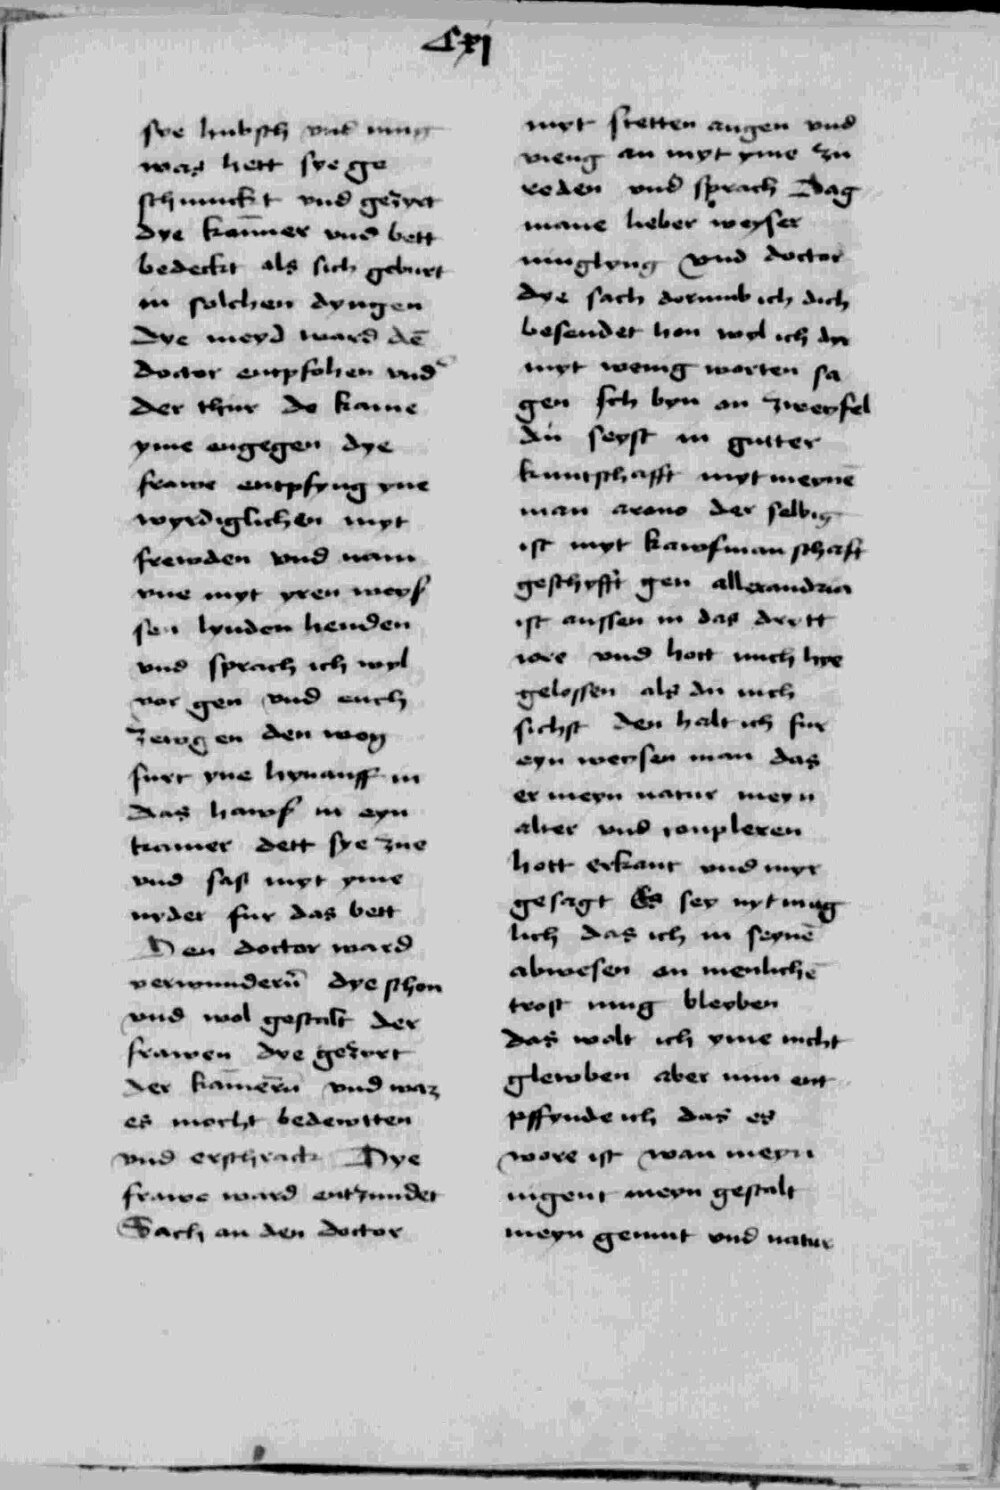 Cxi
sye hubsch vnd iung
was hett sye ge
schmuckt vnd gezyrt
dye kam̄er vnd bett
bedeckt als sich geburt
in solchen dyngen
Dye meyd ward dē
doctor entpfolhen vnd
der thur do kame
yme engegen dye
frawe entpfyng yne
wyrdiglichen myt
frewden vnd nam
yne myt yren weys
sen lynden henden
vnd sprach ich wyl
vor gen vnd euch
zewgen den weg
furt yne hynauff in
das haws in eyn
kamer dett sye zue
vnd sas myt yme
nyder fur das bett
Den doctor ward
verwundern̄ dye schon
vnd wol gestalt der
frawen dye gezyrt
der kam̄ern̄ vnd waz
es mocht bedewtten
vnd erschrack Dye
frawe ward entzundet
Sach an den doctor
myt stetten augen vnd
vieng an myt yme zu
reden vnd sprach Dag
mane lieber weyser
iunglyng vnd doctor
dye sach dorumb ich dich
besendet hon wyl ich dyr
myt wenig worten sa
gen Ich byn on zweyfel
du seyst in gutter
kuntschafft myt meynē
man arono der selbig
ist myt kawfmanschaft
geschyfft gen allexandria
ist aussen in das drytt
iore vnd hott mich hye
gelossen als du mich
sichst den halt ich fur
eyn weysen man das
er meyn natur meyn
alter vnd conplexen
hott erkant vnd myr
gesagt Es sey nyt mug
lich das ich in seynē
abwesen on menlichē
trost mug bleyben
das wolt ich yme nicht
glewben aber nun ent
pffynde ich das es
wore ist wan meyn
iugent meyn gestalt
meyn gemut vnd natur